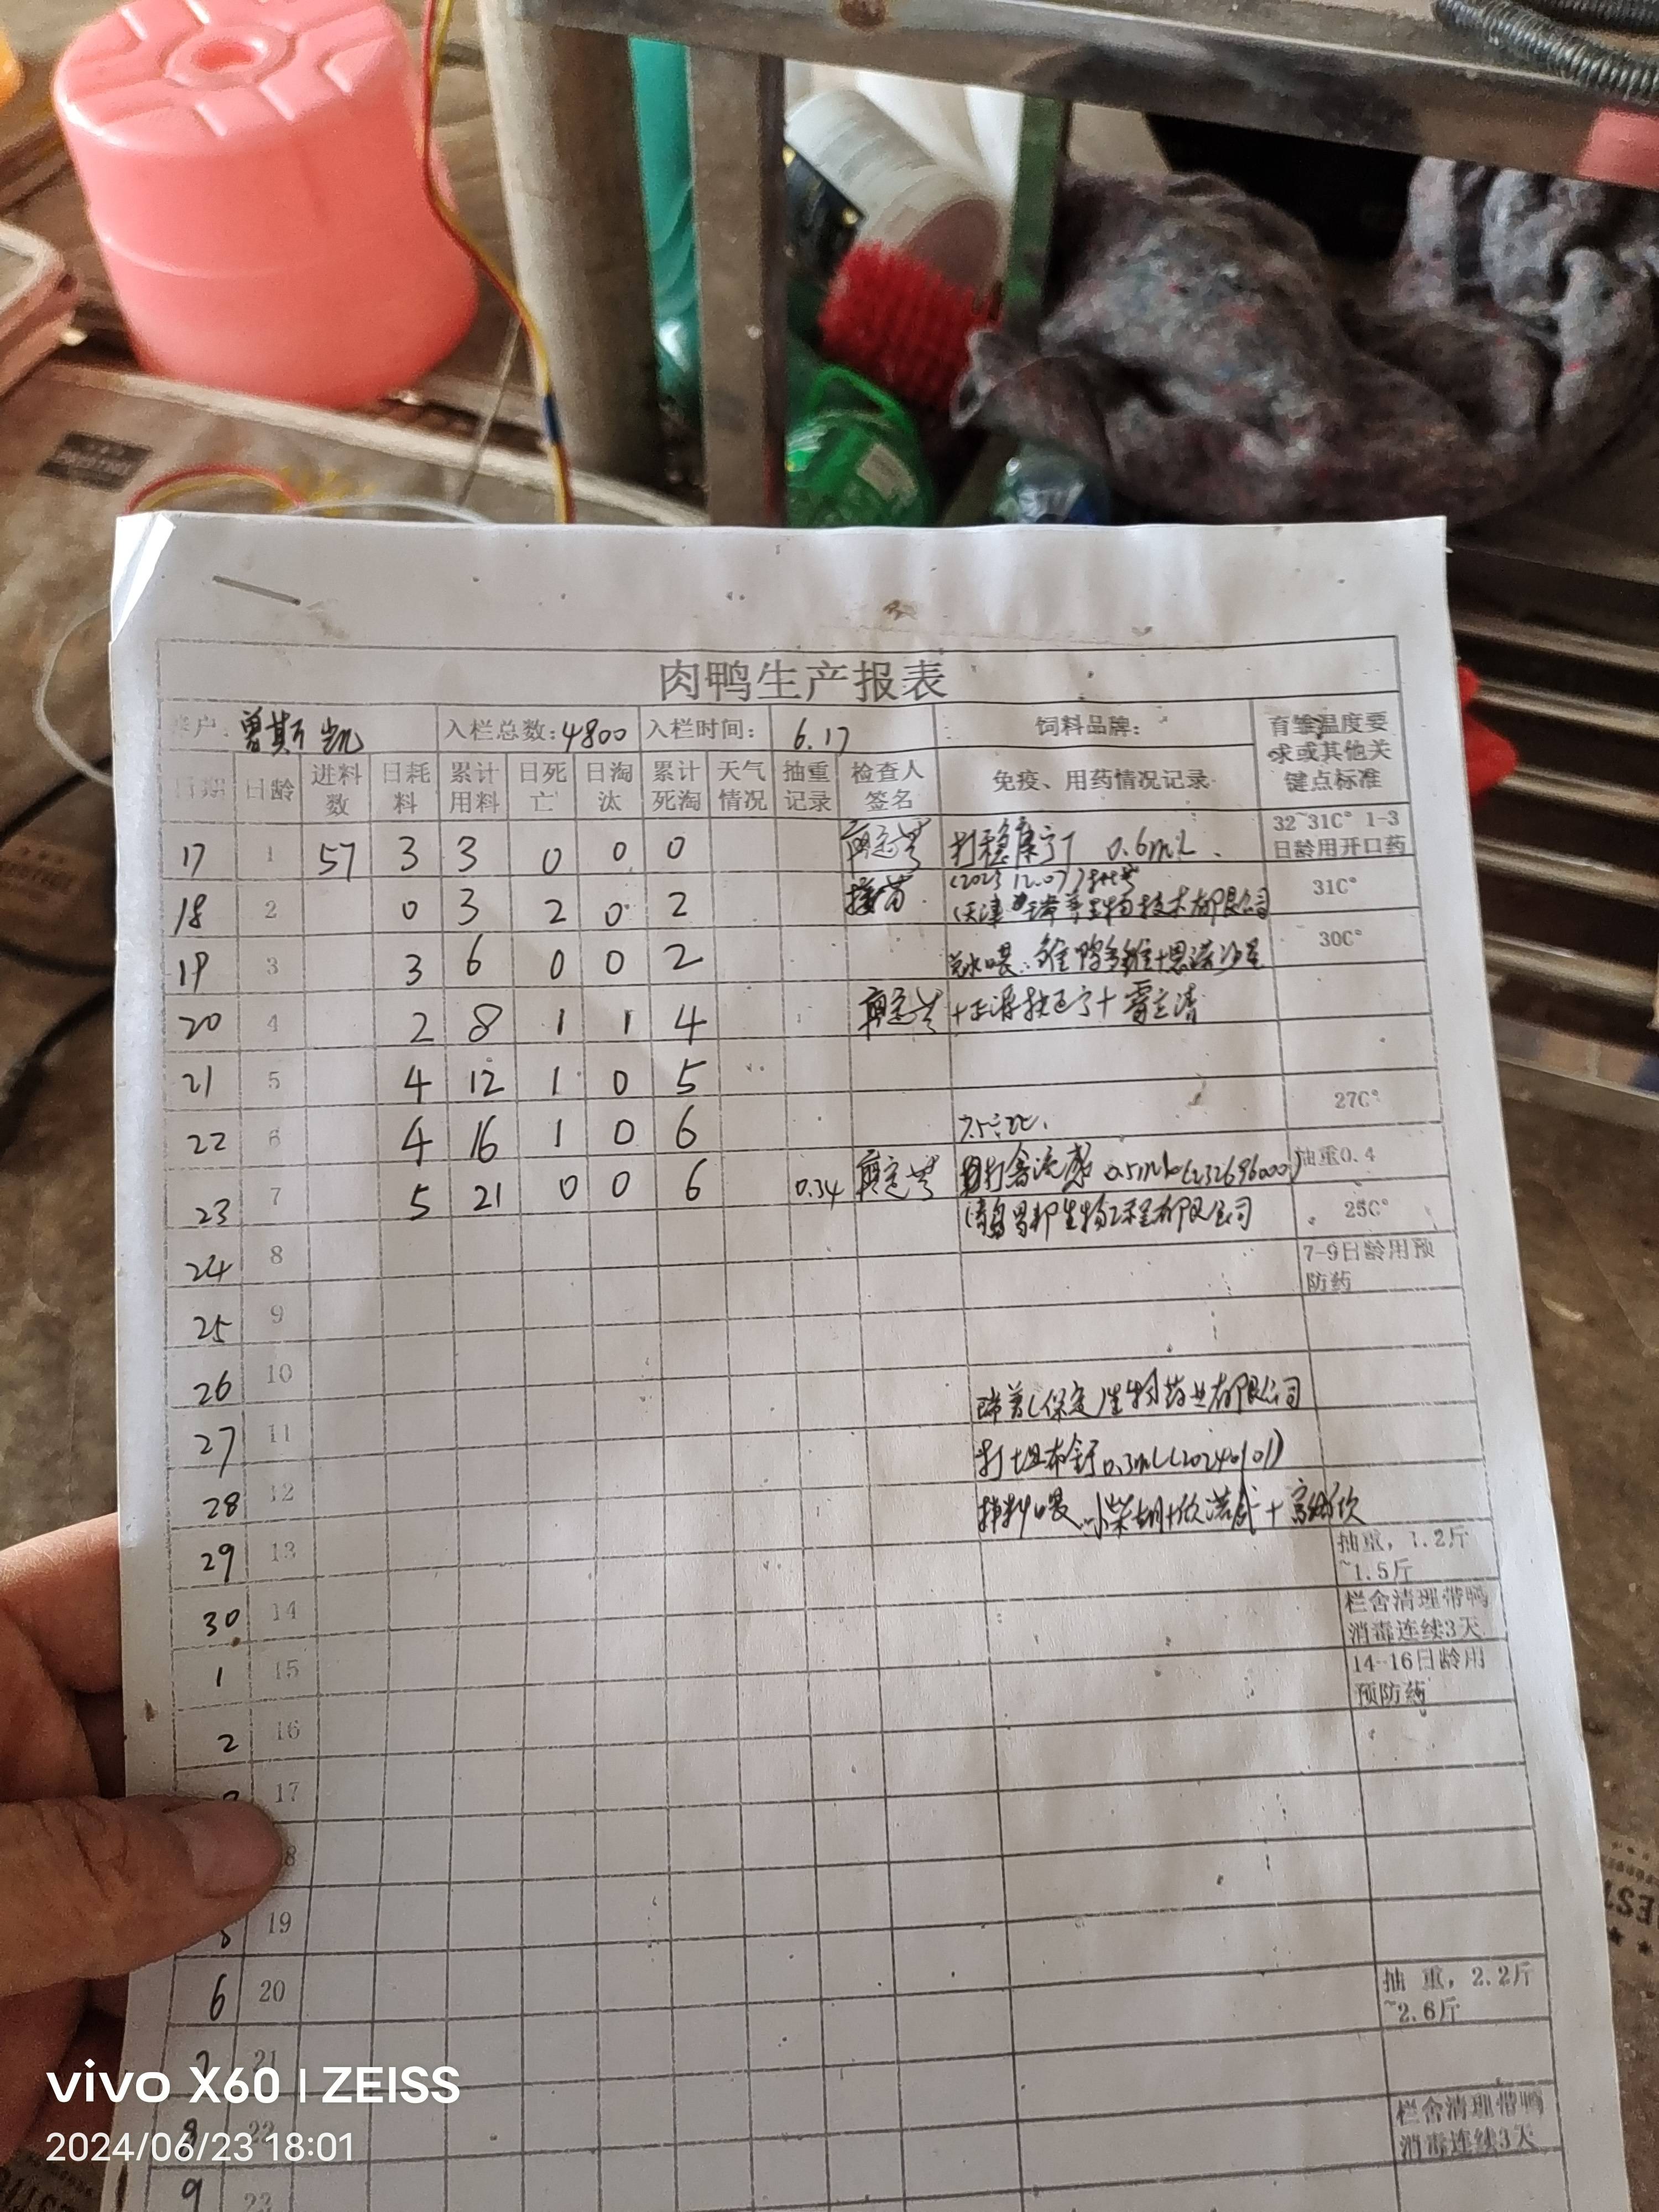 肉鸭生产报表
养户: 曾斯凯 入栏总数:4800 入栏时间: 6.17 饲料品牌: 育雏温度要求或其他关键点标准
日期 日龄 进料数 日耗料 累计用料 日死亡 日淘汰 累计死淘 天气情况 抽重记录 检查人签名 免疫、用药情况记录
17 1 57 3 3 0 0 0 0.6mL 32~31C° 1-3日龄用开口药
18 2 0 3 2 0 2 接苗 (2023 12.07)批号 31C°
(天津瑞普生物技术有限公司
19 3 3 6 0 0 2 30C°
20 4 2 8 1 1 4
21 5 4 12 1 0 5
22 6 4 16 1 0 6 27C°
23 7 5 21 0 0 6 0.34 打禽流感 0.5ml 抽重0.4
生物工程有限公司 25C°
24 8 7-9日龄用预防药
25 9
26 10 瑞普(保定)生物药业有限公司
27 11 0.3ml(20240101)
28 12 拌料喂 小柴胡+
29 13 抽重, 1.2斤~1.5斤
30 14 栏舍清理带鸭消毒连续3天
1 15 14-16日龄用预防药
2 16
17
8
19
6 20 抽 重, 2.2斤~2.6斤
7 21
8 22 栏舍清理带鸭消毒连续3天
9 23
vivo X60 | ZEISS
2024/06/23 18:01